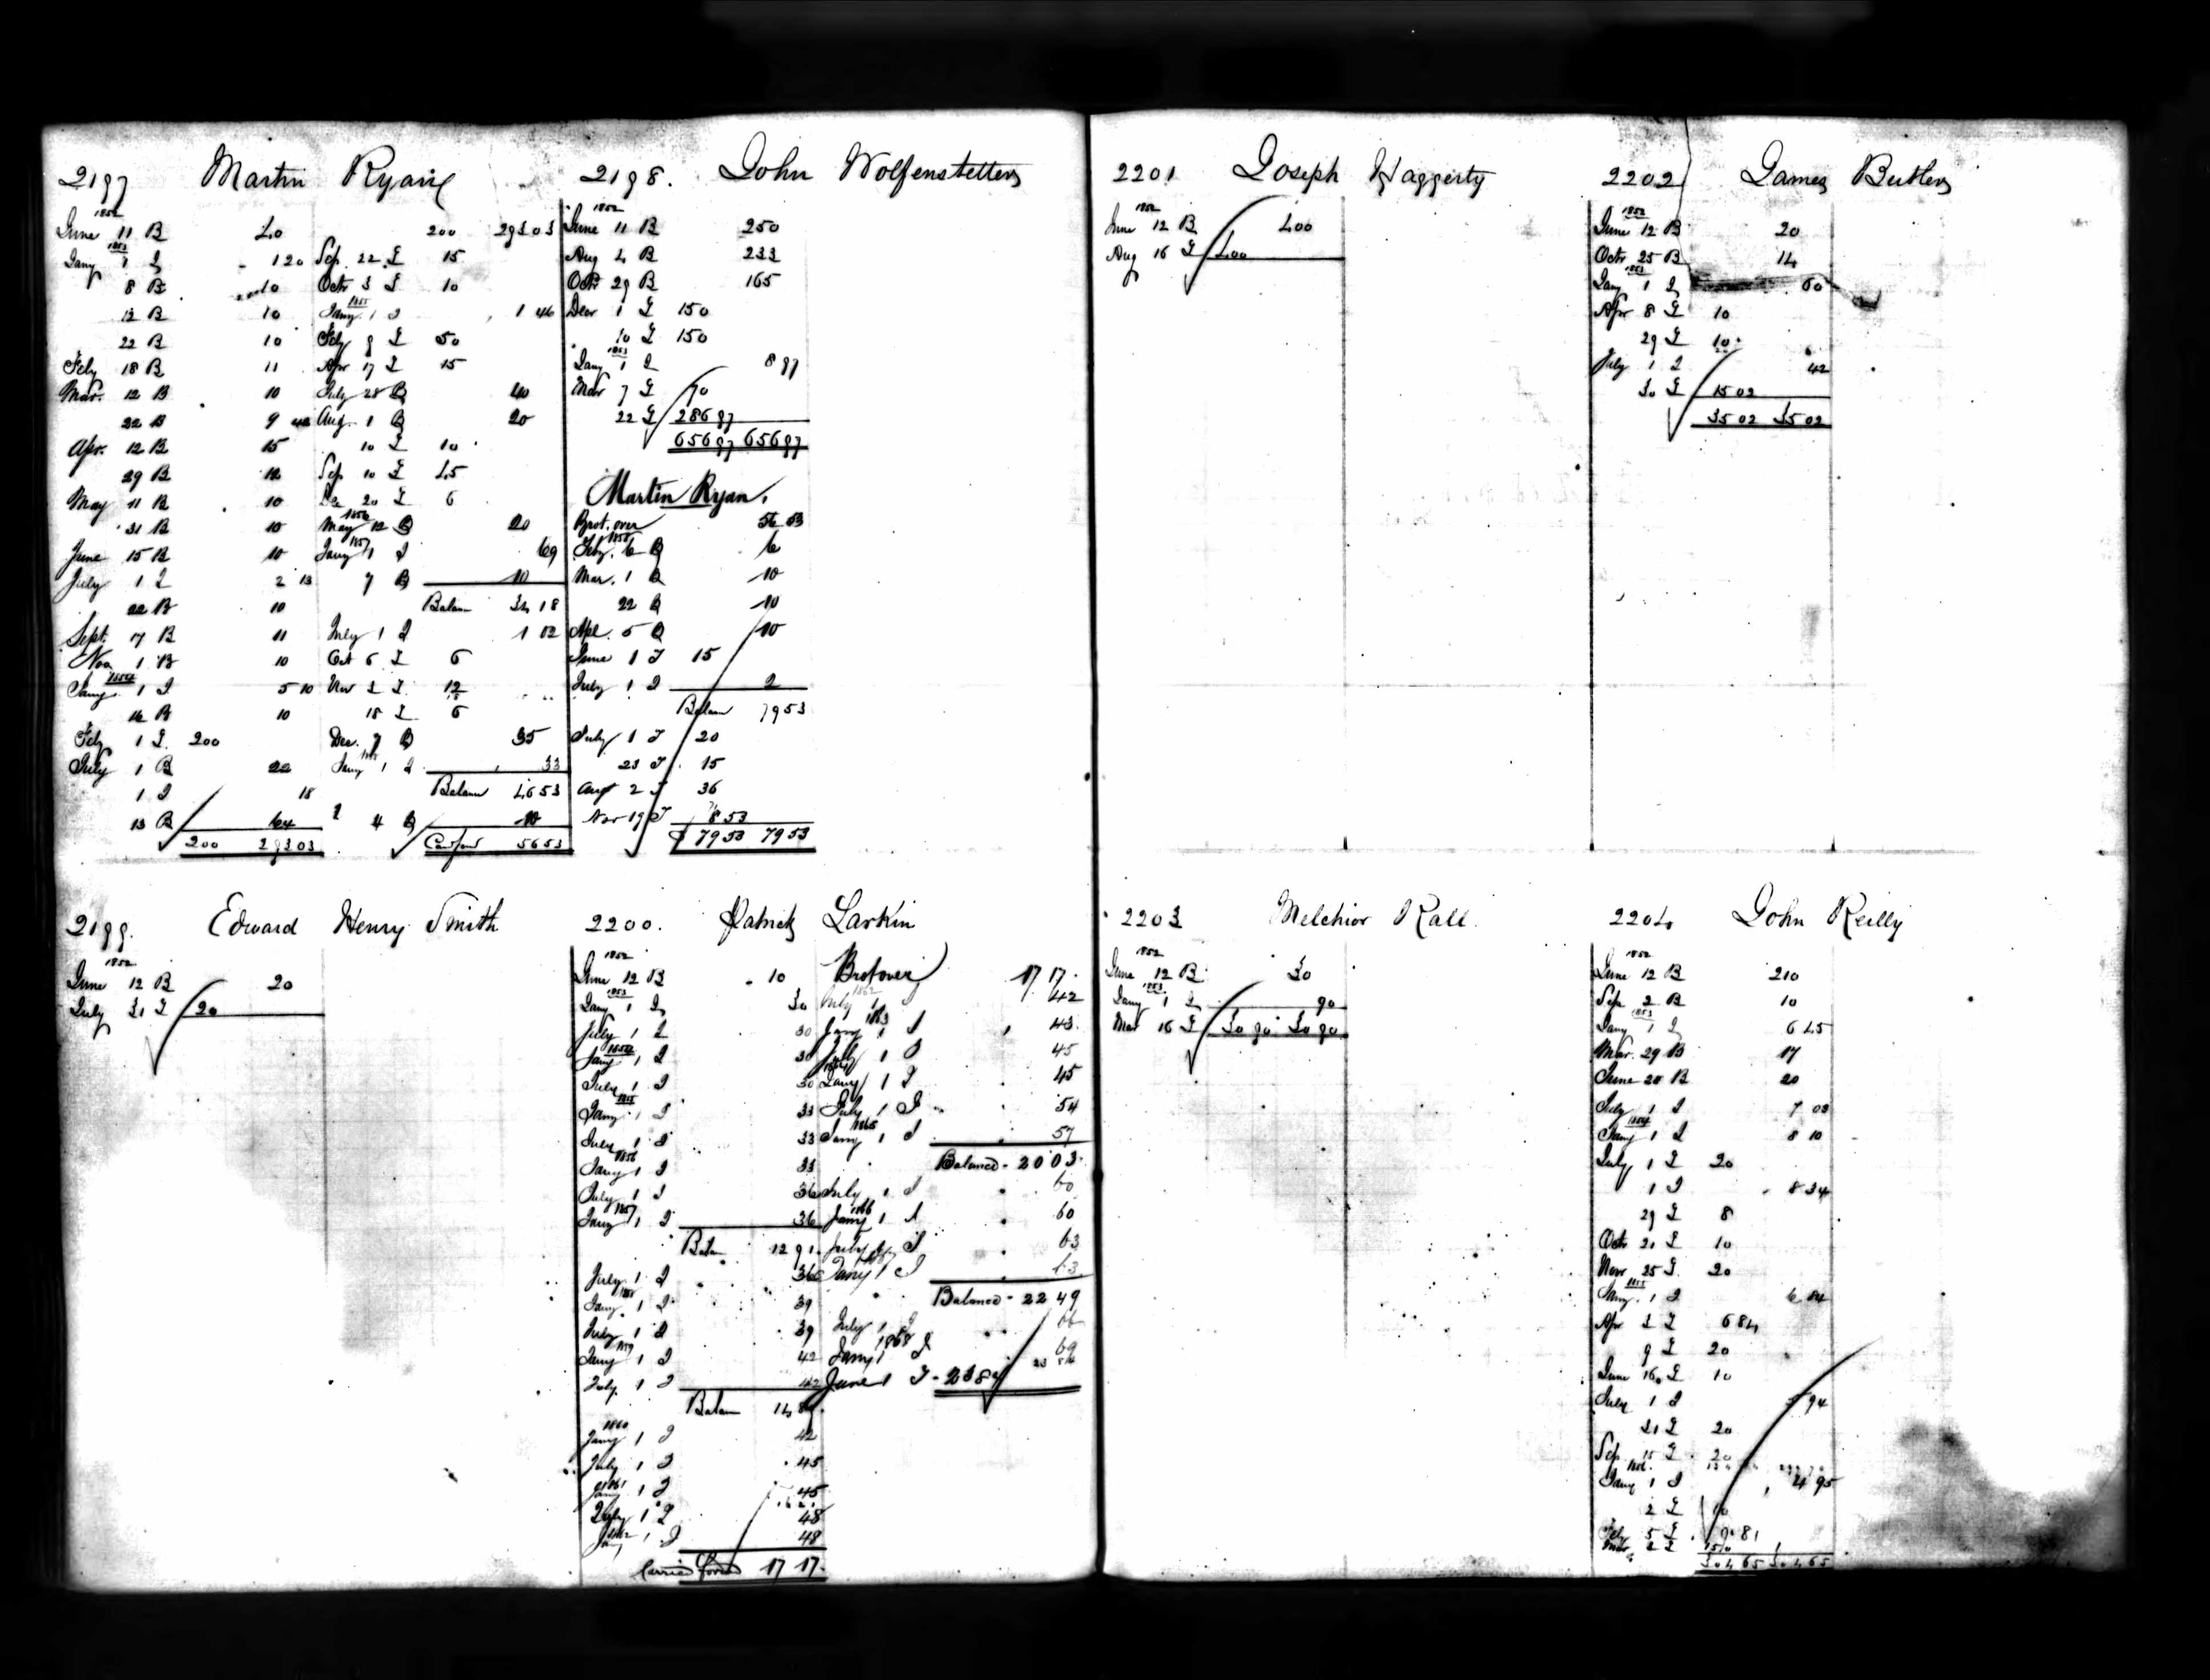 2197 Martin Ryan
1852
June 11 B 40
1853
Jany 1 I 1 20
8 B 10
12 B 10
22 B 10
Feby 18 B 11
Mar. 12 B 10
22 B 9
Apr. 12 B 15
29 B 12
May 11 B 10
31 B 10
June 15 B 10
July 1 I 2 13
22 B 10
Sept. 7 B 11
Nov 1 B 10
1854
Jany 1 I 5 10
16 B 10
Feby 1 T 200
July 1 B 22
1 I 18
13 B 64
200 293 03
200 293 03
Sep. 22 T 15
Octr 3 T 10
1855
Jany 1 I 1 46
Feby 9 T 50
Apr 17 T 15
July 28 B 40
Aug. 1 B 20
10 T 10
Sep 10 T 45
De 20 T 6
1856
May 12 B 20
1857
Jany 1 I 69
7 B 10
Balan 34 18
July 1 I 1 02
Oct 6 T 6
Nov 3 T 12
18 T 6
Dec. 7 B 35
Jany 1 I 33
Balance 46 53
4 B 10
Car forw 56 53
2198. John Wolfenstetter
1852
June 11 B 250
Aug 4 B 233
Octr 29 B 165
Decr 1 T 150
10 T 150
1853
Jany 1 I 8 97
Mar 7 T 70
22 T 286 97
656 97 656 97
Martin Ryan.
Brot. over 56 53
1858
Feby. 6 B 6
Mar. 1 B 10
22 B 10
Apl. 5 B 10
June 1 T 15
July 1 I 2
Balan 79 53
July 1 T 20
23 T 15
Augt 2 T 36
Nov 19 T 8 53
$ 79 53 79 53
2199. Edward Henry Smith
1852
June 12 B 20
July 31 T 20
2200. Patrick Larkin
1852
June 12 B 10
1853
Jany 1 I 30
July 1 I 30
1854
Jany 1 I 30
July 1 I 30
1855
Jany 1 I 33
July 1 I 33
1856
Jany 1 I 33
July 1 I 36
1857
Jany 1 I 36
Balan 12 91
July 1 I 36
1858
Jany 1 I 39
July 1 I 39
1859
Jany 1 I 42
July 1 I 42
Balan 14 89
1860
Jany 1 I 42
July 1 I 45
1861
Jany 1 I 45
July 1 I 48
1862
Jany 1 I 48
Carried forwd 17 17
Brot over 17 17
1862
July 1 I 42
1863
Jany 1 I 43
July 1 I 45
Jany 1 I 45
July 1 I 54
1865
Jany 1 I 57
Balanced - 20 03
July 1 I 60
1866
Jany 1 I 60
July 1 I 63
1867
Jany 1 I 63
Balanced - 22 49
July 1 I 66
1868
Jany 1 I 69
23 84
June 1 T - 23 84
2201 Joseph Haggerty
1852
June 12 B 400
Aug 16 T 400
2202 James Butler
1852
June 12 B 20
Octr 25 B 14
1853
Jany 1 I 60
Apr 8 T 10
29 T 10
July 1 I 42
30 T 15 02
35 02 35 02
2203 Melchior Rall
1852
June 12 B 30
1853
Jany 1 I 90
Mar 16 T 30 90 30 90
2204 John Reilly
1852
June 12 B 210
Sep 2 B 10
1853
Jany 1 I 6 45
Mar. 29 B 17
June 20 B 20
July 1 I 7 02
1854
Jany 1 I 8 10
July 1 T 20
1 I 8 34
29 T 8
Octr 21 T 10
Novr 25 T 20
1855
Jany 1 I 6 84
Apr 3 T 6 84
9 T 20
June 16 T 10
July 1 I 5 94
31 T 20
Sep 15 T 20
1856
Jany 1 I 4 95
2 T 10
Feby 5 T 9 81
Mar 2 T 150
304 65 304 65